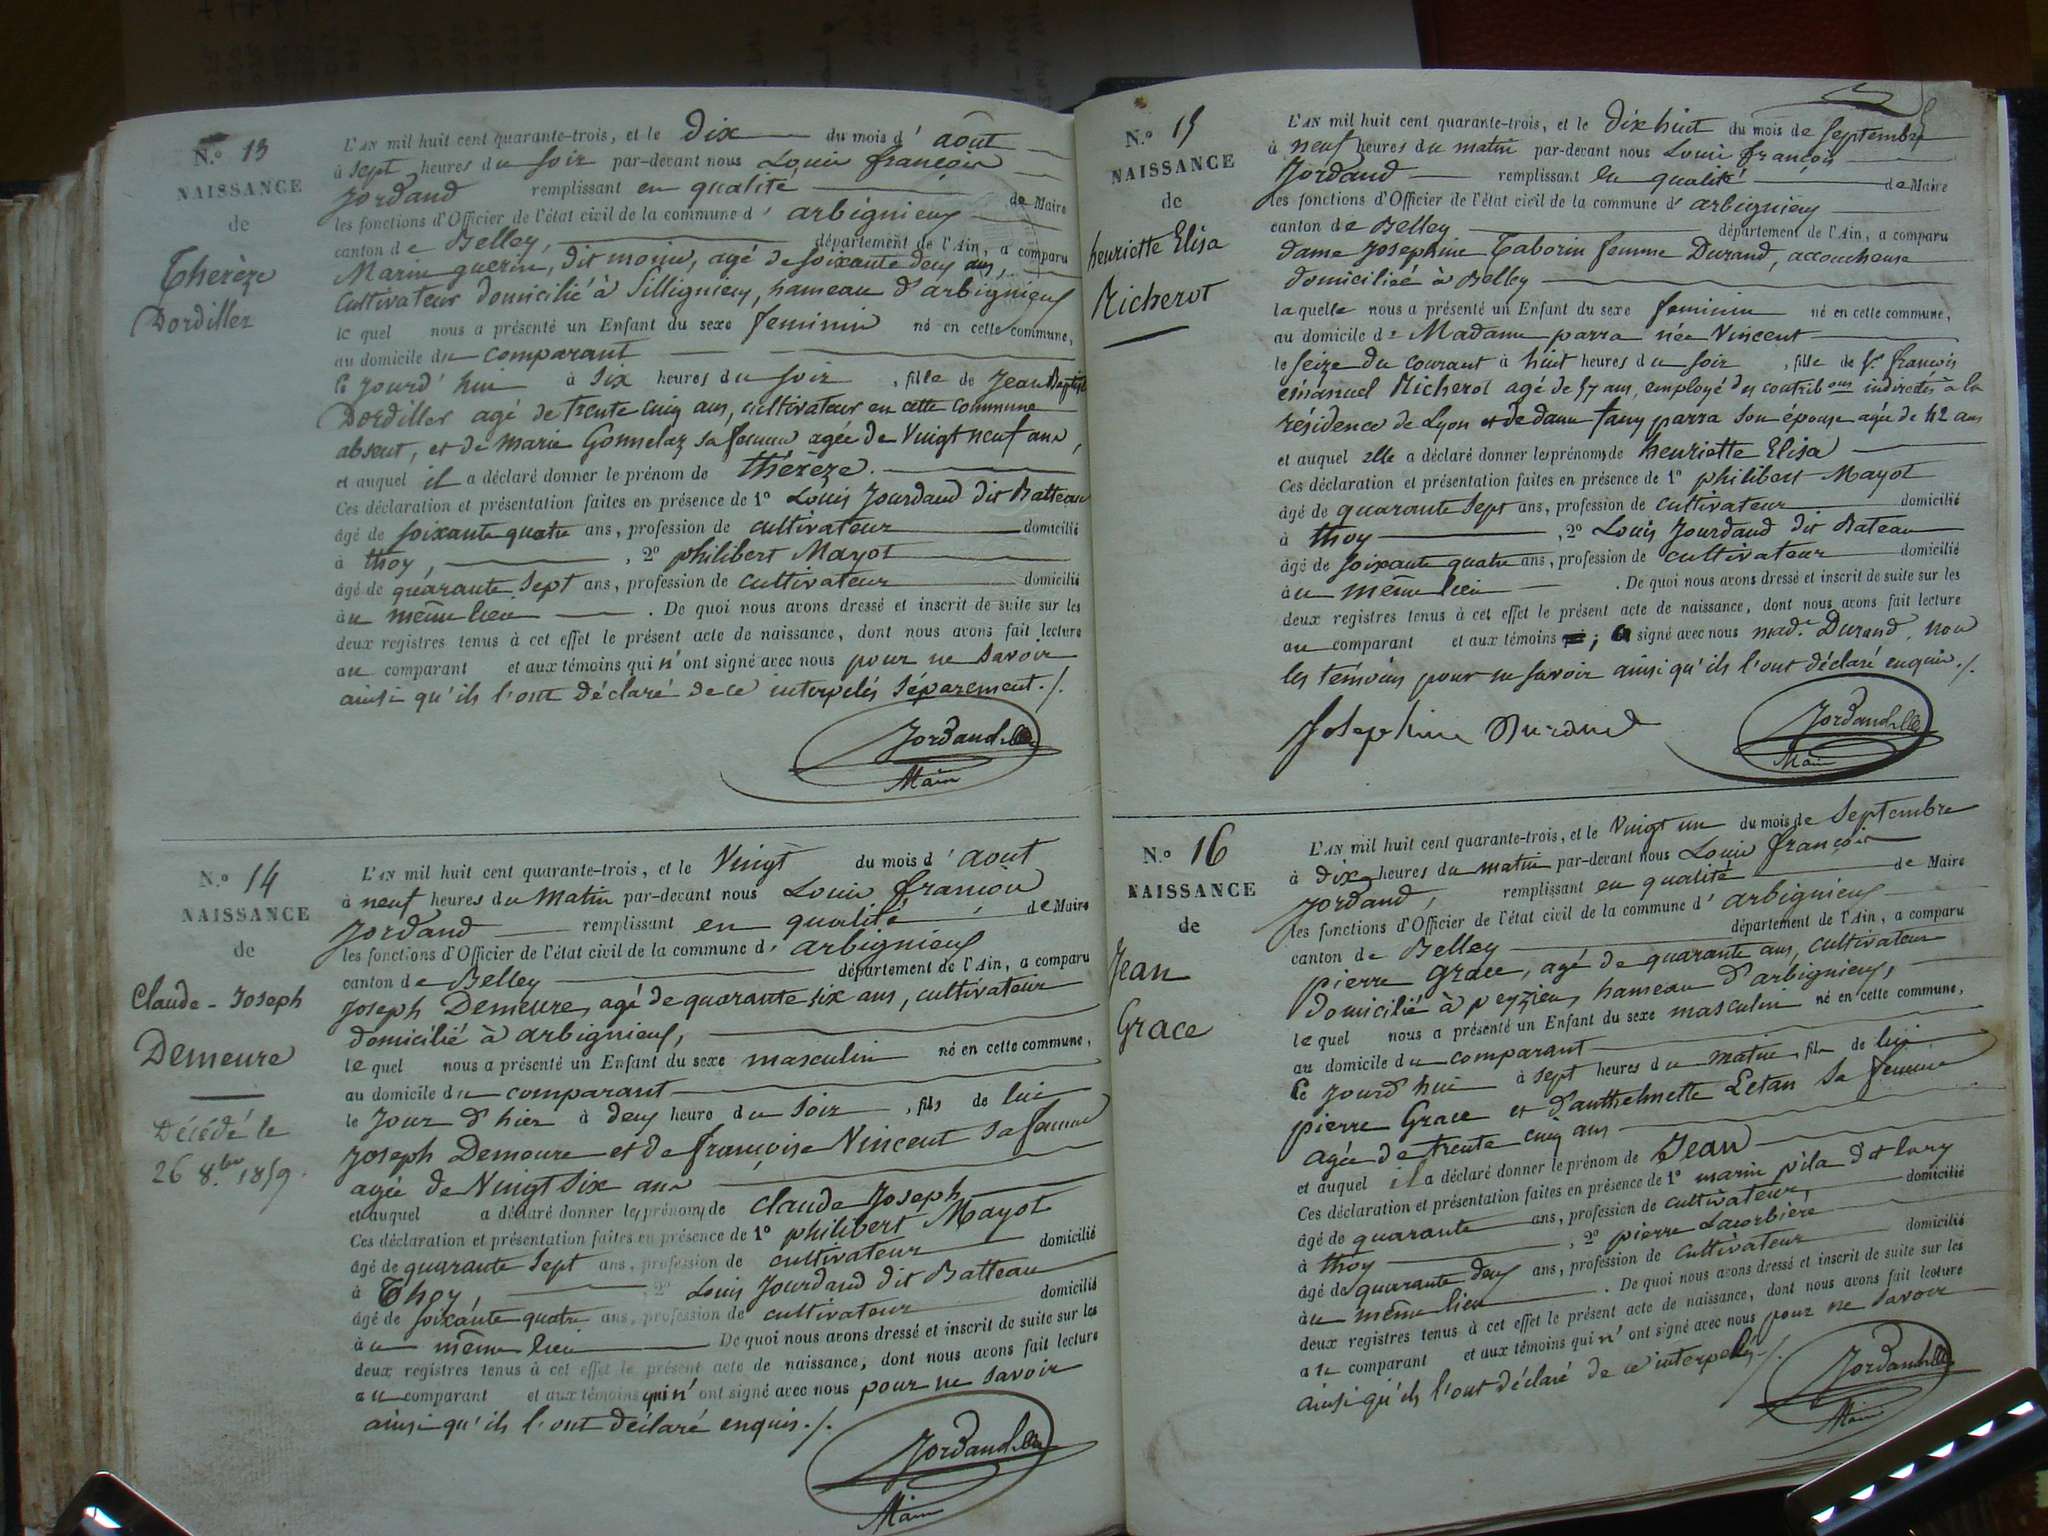 N.º 13
NAISSANCE
de
Thérèze
Dordillez
L'AN mil huit cent quarante-trois, et le dix du mois d'août
à sept heures du soir par-devant nous Louis françois
Jordand remplissant en qualité de Maire
les fonctions d'Officier de l'état civil de la commune d'arbignieu
canton de Belley, département de l'Ain, a comparu
Marin guerin, dit moine, agé de soixante deux ans,
cultivateur domicilié à Sillignieu, hameau d'arbignieu
le quel nous a présenté un Enfant du sexe feminin né en cette commune,
au domicile du comparant
ce jourd'hui à six heures du soir, fille de Jean Baptiste
Dordillez agé de trente cinq ans, cultivateur en cette commune
absent, et de marie Gonnelaz sa femme agée de Vingt neuf ans,
et auquel il a déclaré donner le prénom de thérèze.
Ces déclaration et présentation faites en présence de 1º Louis Jourdand dit Batteau
âgé de soixante quatre ans, profession de cultivateur domicilié
à thoy, 2º philibert Mayot
âgé de quarante sept ans, profession de cultivateur domicilié
au même lieu. De quoi nous avons dressé et inscrit de suite sur les
deux registres tenus à cet effet le présent acte de naissance, dont nous avons fait lecture
au comparant et aux témoins qui n'ont signé avec nous pour ne savoir
ainsi qu'ils l'ont déclaré de ce interpelés séparement./.
Jordand
Maire
N.º 14
NAISSANCE
de
Claude-Joseph
Demeure
Décédé le
26 8.bre 1859.
L'AN mil huit cent quarante-trois, et le Vingt du mois d'aout
à neuf heures du Matin par-devant nous Louis françois
Jordand remplissant en qualité de Maire
les fonctions d'Officier de l'état civil de la commune d'arbignieu
canton de Belley département de l'Ain, a comparu
Joseph Demeure, agé de quarante six ans, cultivateur
domicilié à arbignieu,
le quel nous a présenté un Enfant du sexe masculin né en cette commune,
au domicile du comparant
le jour d'hier à deux heure du Soir, fils de lui
Joseph Demeure et de françoise Vincent sa femme
agée de Vingt six ans
et auquel a déclaré donner les prénoms de Claude Joseph
Ces déclaration et présentation faites en présence de 1º philibert Mayot
âgé de quarante sept ans, profession de cultivateur domicilié
à Thoy, 2º Louis Jourdand dit Batteau
âgé de soixante quatre ans, profession de cultivateur domicilié
au même lieu De quoi nous avons dressé et inscrit de suite sur les
deux registres tenus à cet effet le présent acte de naissance, dont nous avons fait lecture
au comparant et aux témoins qui n'ont signé avec nous pour ne savoir
ainsi qu'ils l'ont déclaré enquis./.
Jordand
Maire
N.º 15
NAISSANCE
de
henriette Elisa
Richerot
L'AN mil huit cent quarante-trois, et le dix huit du mois de septembre
à neuf heures du matin par-devant nous Louis françois
Jordand remplissant en qualité de Maire
les fonctions d'Officier de l'état civil de la commune d'arbignieu
canton de Belley département de l'Ain, a comparu
dame Josephine Taborin femme Durand, accoucheuse
domiciliée à Belley
laquelle nous a présenté un Enfant du sexe feminin né en cette commune,
au domicile de Madame parra née Vincent
le seize du courant à huit heures du soir, fille de Sr. françois
émanuel Richerot agé de 57 ans, employé des contributions indirectes à la
résidence de Lyon et de dame fany parra son épouse agée de 42 ans
et auquel elle a déclaré donner les prénoms de henriette Elisa
Ces déclaration et présentation faites en présence de 1º philibert Mayot
âgé de quarante sept ans, profession de cultivateur domicilié
à thoy, 2º Louis Jourdand dit Bateau
âgé de soixante quatre ans, profession de cultivateur domicilié
au même lieu. De quoi nous avons dressé et inscrit de suite sur les
deux registres tenus à cet effet le présent acte de naissance, dont nous avons fait lecture
au comparant et aux témoins; a signé avec nous mad.e Durand, non
les témoins pour ne savoir ainsi qu'ils l'ont déclaré enquis./.
Josephine Durand
Jordand
Maire
N.º 16
NAISSANCE
de
Jean
Grace
L'AN mil huit cent quarante-trois, et le Vingt un du mois de septembre
à dix heures du matin par-devant nous Louis françois
Jordand, remplissant en qualité de Maire
les fonctions d'Officier de l'état civil de la commune d'arbignieu
canton de Belley département de l'Ain, a comparu
pierre Grace, agé de quarante ans, cultivateur
domicilié à peyzieu, hameau d'arbignieu,
le quel nous a présenté un Enfant du sexe masculin né en cette commune,
au domicile du comparant
ce jourd'hui à sept heures du matin, fils de lui
pierre Grace et d'anthelmette Letan sa femme
agée de trente cinq ans
et auquel il a déclaré donner le prénom de Jean
Ces déclaration et présentation faites en présence de 1º marin pila
âgé de quarante ans, profession de cultivateur, domicilié
à thoy, 2º pierre Lacorbiere
âgé de quarante deux ans, profession de cultivateur domicilié
au même lieu. De quoi nous avons dressé et inscrit de suite sur les
deux registres tenus à cet effet le présent acte de naissance, dont nous avons fait lecture
au comparant et aux témoins qui n'ont signé avec nous pour ne savoir
ainsi qu'ils l'ont déclaré de ce interpellés./.
Jordand
Maire